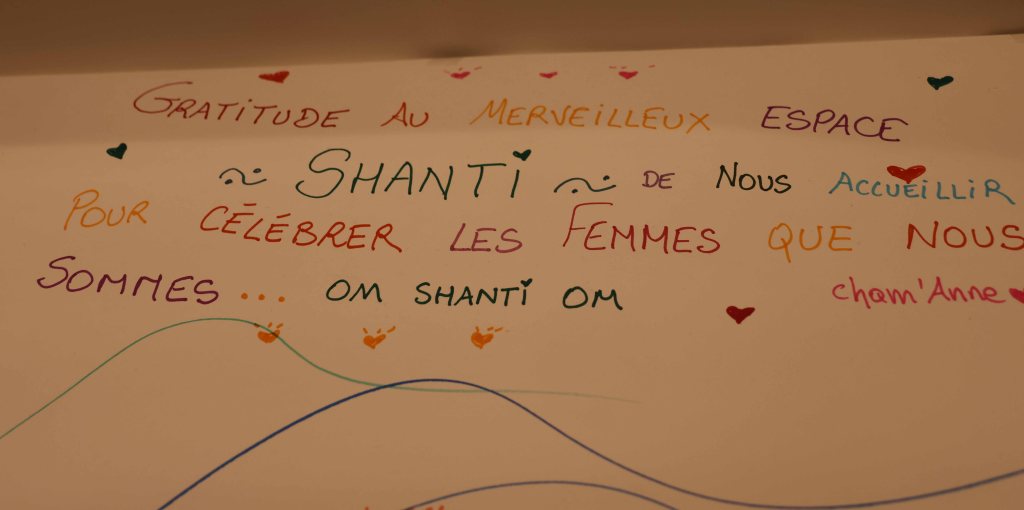 GRATiTUDE AU MERVEiLLEUX ESPACE
~ SHANTi ~ DE NOUS ACCUEiLLiR
POUR CÉLÉBRER LES FEMMES QUE NOUS
SOMMES ... OM SHANTi OM
cham'Anne